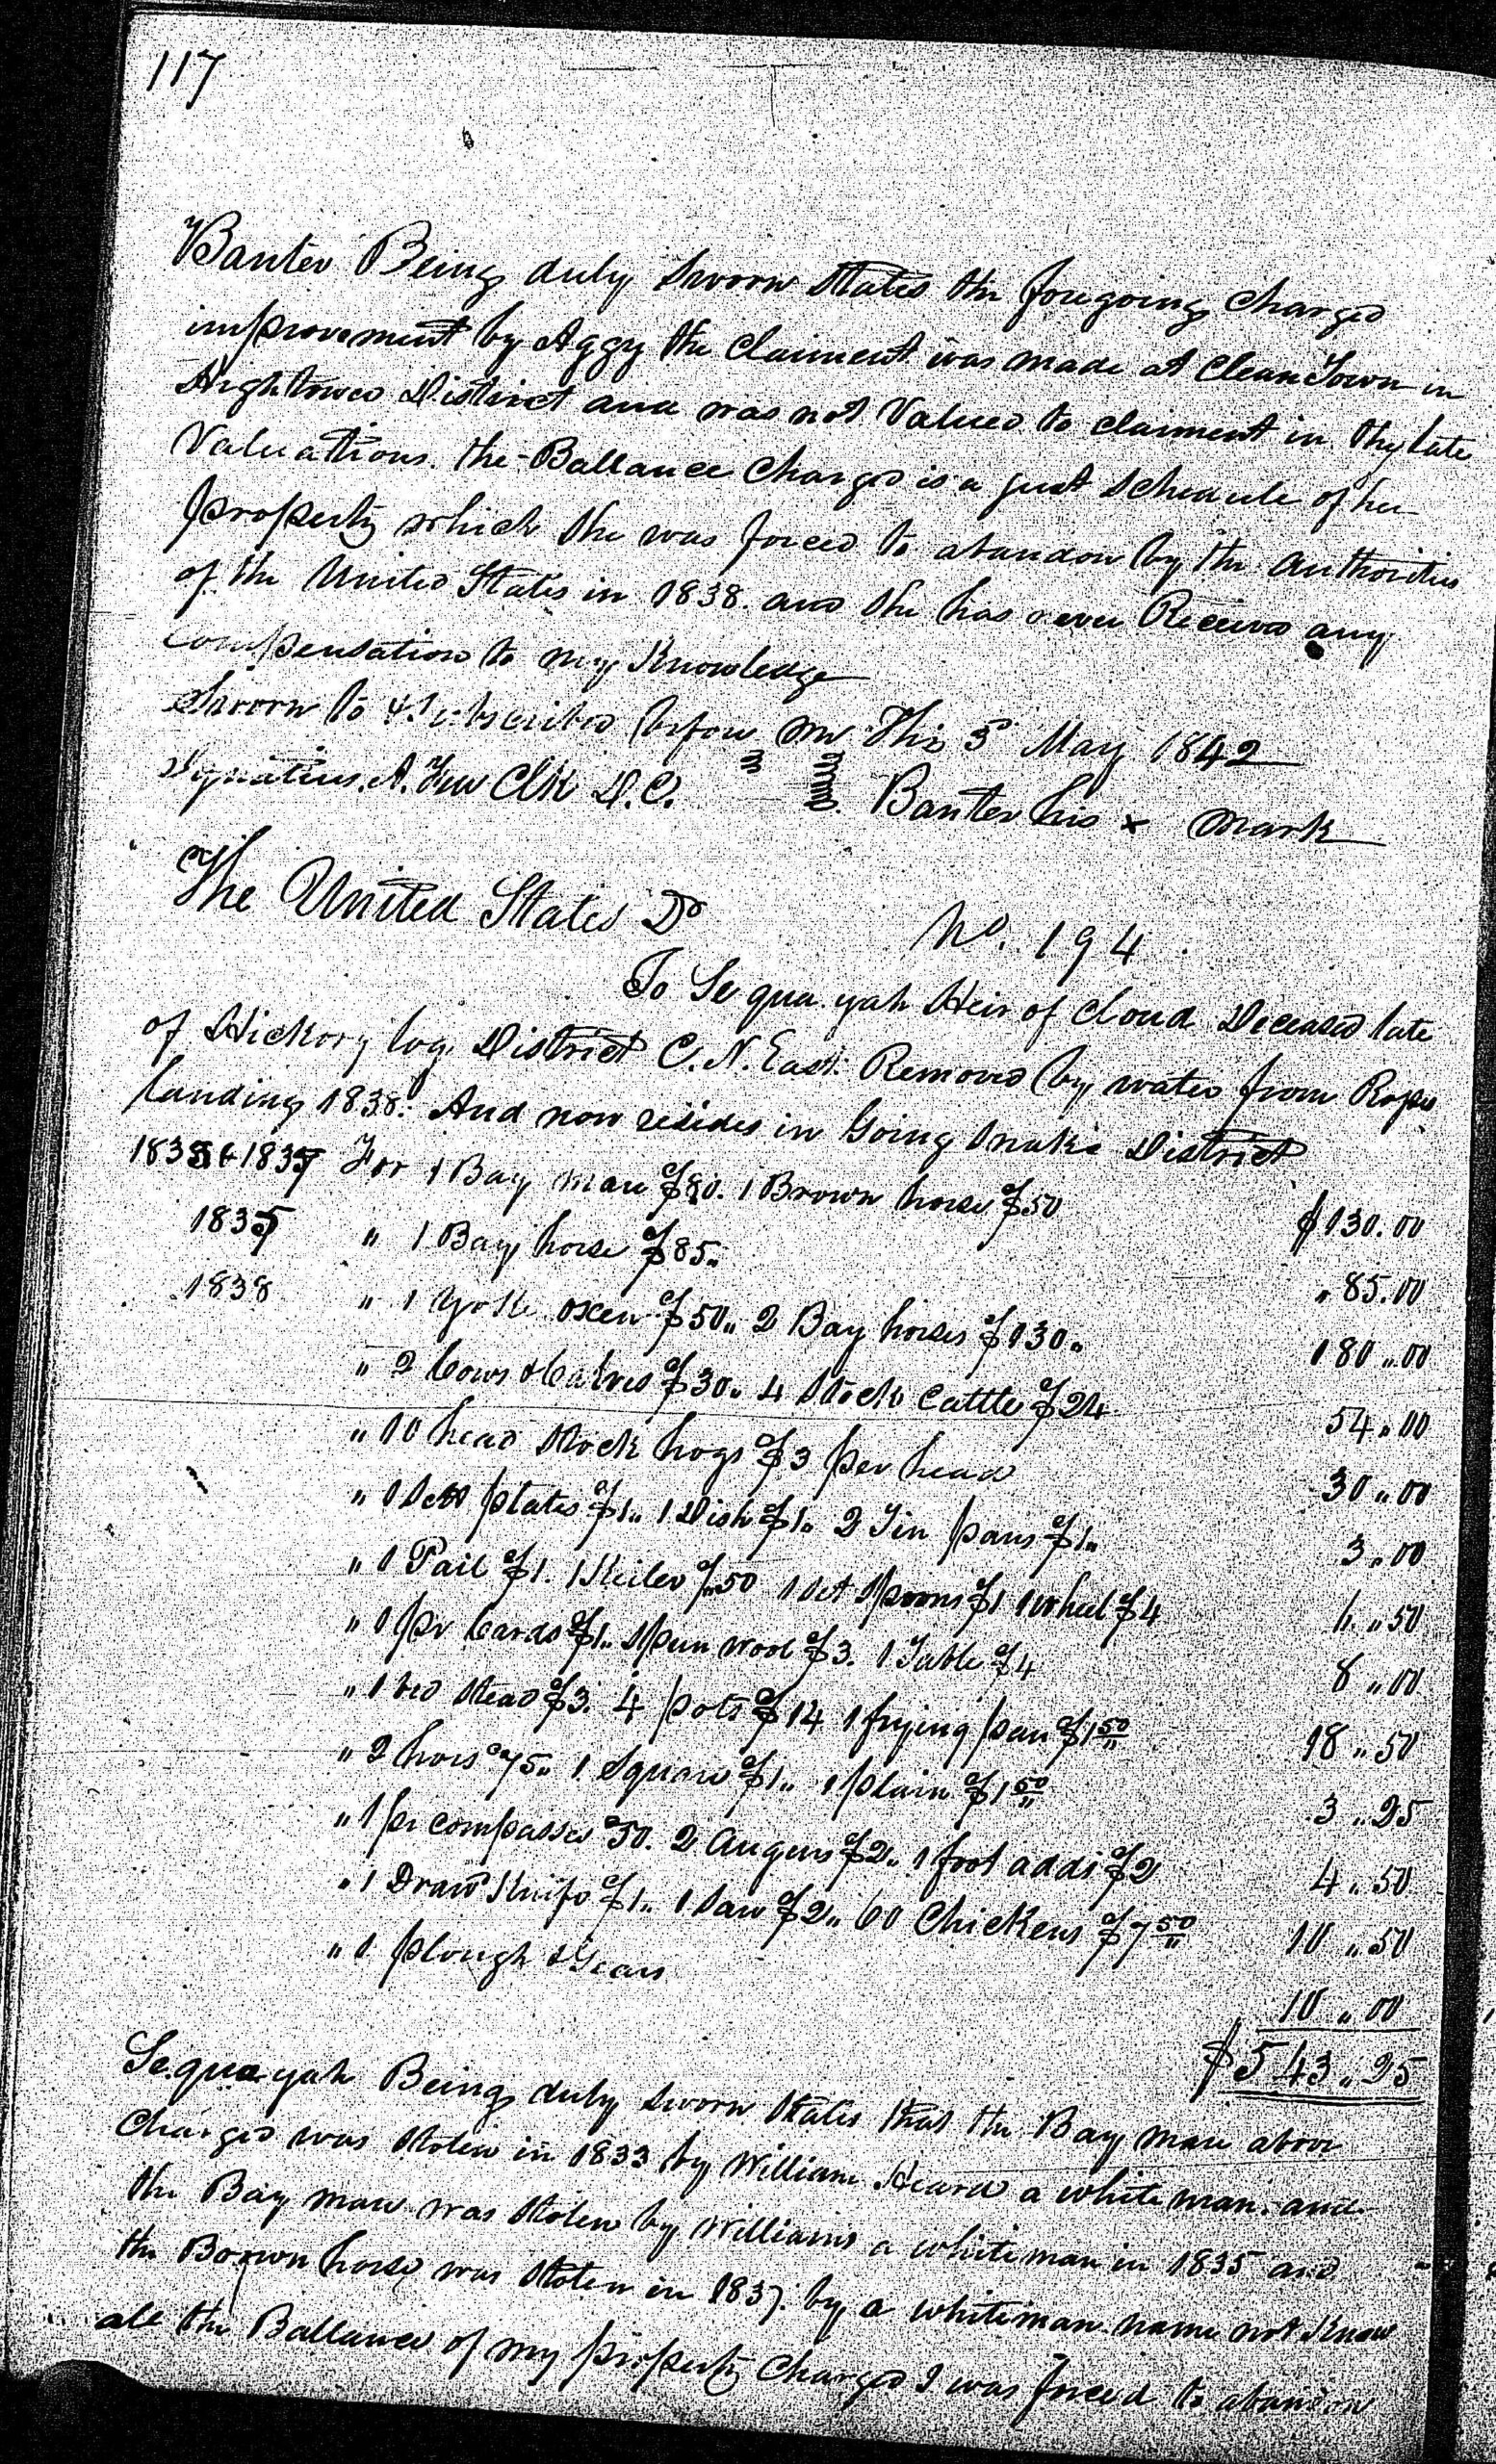 117
Banter Being duly Sworn States the foregoing charged
improvement by Aggy the Claiment was made at Clean Town in
Hightower District and was not Valued to claiment in the late
Valuations. the Ballance Charged is a just Schedule of her
property which she was forced to abandon by the authorities
of the United States in 1838. and she has never Received any
compensation to my Knowledge
Sworn to & Subscribed before me This 3d May 1842
Ignatius. A. Few Clk D.C. Banter his x mark
The United States Dr No. 194
To Se qua. yah Heir of Cloud Deceased late
of Hickory log District C. N. East. Removed by water from Ross
landing 1838. And now resides in Going Snake District
For 1 Bay mare $80. 1 Brown horse $50 $130.00
1835 " 1 Bay horse $85. " 85.00
1838 " 1 Yoke oxen $50 " 2 Bay horses $130 " 180 " 00
" 2 Cows & Calves $30 " 4 Stock Cattle $24 54 " 00
" 10 head Stock hogs $3 per head 30 " 00
" 1 Sett plates $1 " 1 Dish $1 " 2 Tin pans $1 " 3 " 00
" 1 Pail $1. 1 Keiler $ " 50 1 Set Spoons $1 1 wheel $4 6 " 50
" 1 pr Cards $1 " Spun wool $3. 1 Table $4 8 " 00
" 1 bed Stead $3. 4 pots $14 1 frying pan $1 50 18 " 50
" 2 hoes 75 " 1 Square $1 " 1 plain $1 50 3 " 25
" 1 pr compasses 50. 2 augurs $2 " 1 foot adds $2 4 " 50
" 1 Draw Knife $1 " 1 Saw $2 " 60 Chickens $7 50 10 " 50
" 1 plough & Gears 10 " 00
$543 " 25
Se.qua-yah Being duly sworn States that the Bay mare above
Charged was stolen in 1833 by William Heard a white man. and
the Bay mare was stolen by Williams a white man in 1835 and
the Brown horse was stolen in 1837. by a white man name not Know
all the Ballance of my property Charged I was forced to abandon